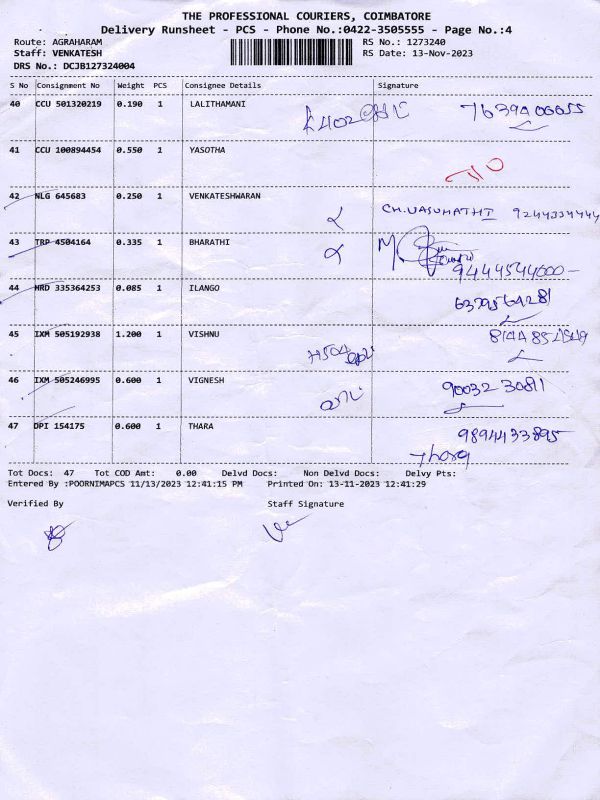 THE PROFESSIONAL COURIERS, COIMBATORE
Delivery Runsheet - PCS - Phone No.:0422-3505555 - Page No.:4
Route: AGRAHARAM RS No.: 1273240
Staff: VENKATESH RS Date: 13-Nov-2023
DRS No.: DCJB127324004
S No Consignment No Weight PCS Consignee Details Signature
40 CCU 501320219 0.190 1 LALITHAMANI
41 CCU 100894454 0.550 1 YASOTHA
42 NLG 645683 0.250 1 VENKATESHWARAN CH.VASUMATHI 9244334444
43 TRP 4504164 0.335 1 BHARATHI
9444544600
44 HRD 335364253 0.085 1 ILANGO
45 IXM 505192938 1.200 1 VISHNU
46 IXM 505246995 0.600 1 VIGNESH 90032 30811
47 DPI 154175 0.600 1 THARA 9894433895
Thara
Tot Docs: 47 Tot COD Amt: 0.00 Delvd Docs: Non Delvd Docs: Delvy Pts:
Entered By :POORNIMAPCS 11/13/2023 12:41:15 PM Printed On: 13-11-2023 12:41:29
Verified By Staff Signature